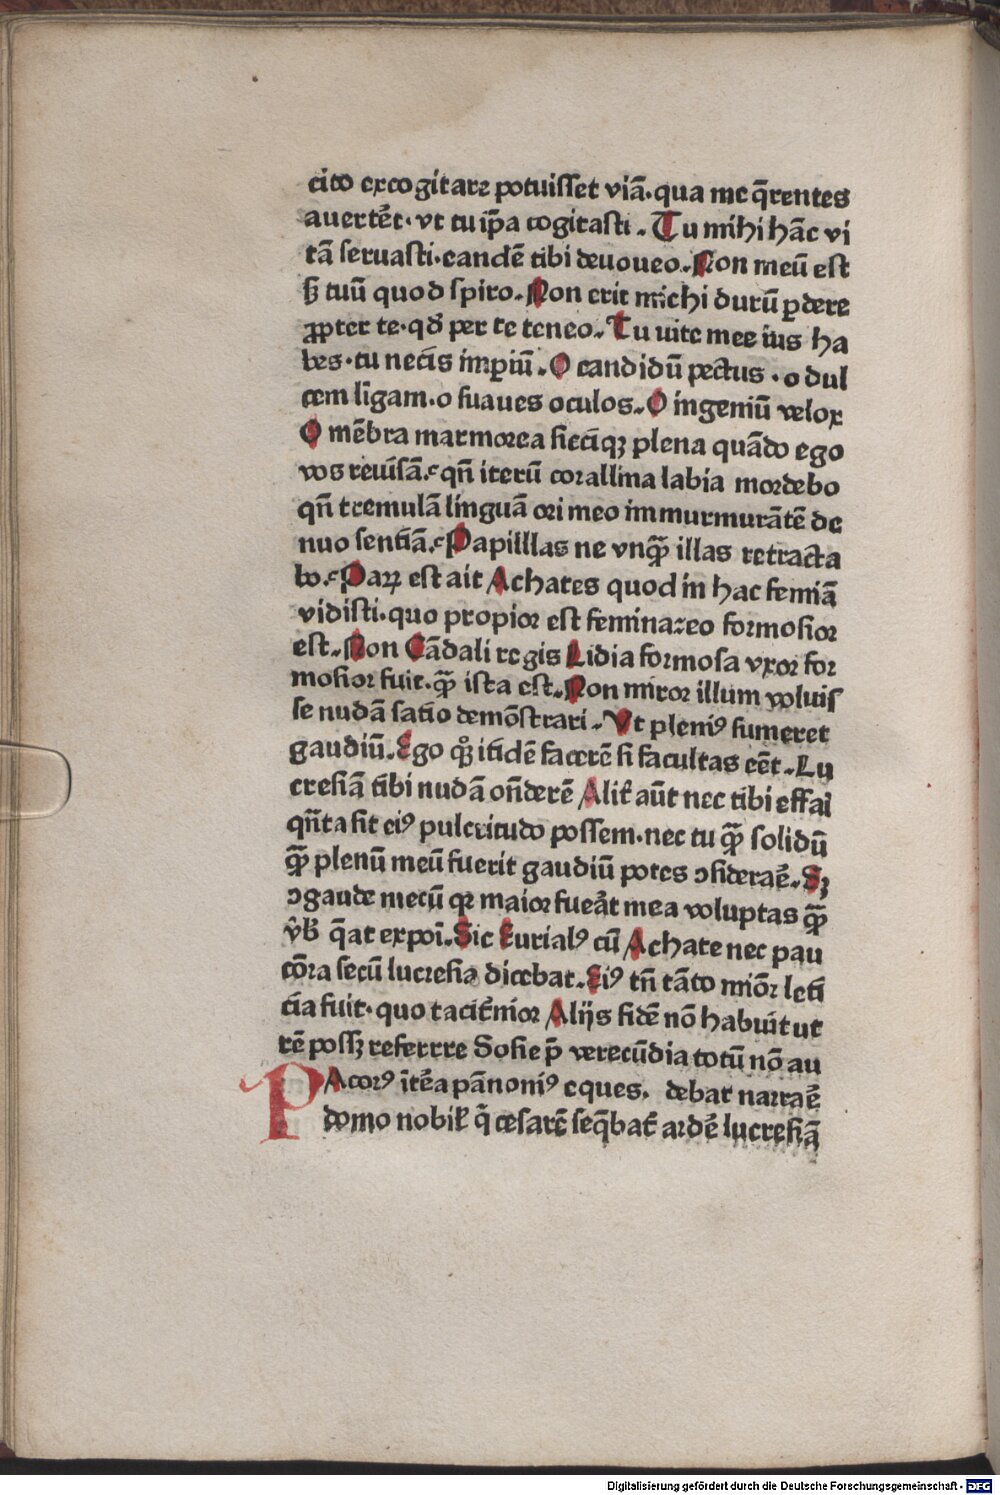 cito excogitare potuisset viā·qua me q̄rentes
auertēt·vt tu ip̄a cogitasti. Tu mihi hāc vi
tā seruasti·eandē tibi deuoueo. Non meū est
sꝫ tuū quod spiro. Non erit michi durū ꝑdere
ꝓpter te·qđ per te teneo. Tu uite mee ius ha
bes·tu necis imꝑiū. O candidū pectus·o dul
cem līgam·o suaues oculos. O ingeniū velox
O mēbra marmorea sicciqꝫ plena quādo ego
vos reuisā. qn̄ iterū corallina labia mordebo
qn̄ tremulā linguā ori meo immurmurātē de
nuo sentiā. Papilllas ne vnqꝫ̄ illas retracta
bo. Parꝫ est ait Achates quod in hac femiā
vidisti·quo propior est femina eo formosior
est. Non Cādali regis Lidia formosa vxor for
mosior fuit·qꝫ̄ ista est. Non miror illum voluis
se nudā satio demōstrari. Vt pleniꝰ sumeret
gaudiū. Ego qͦꝫ itidē facerē si facultas eēt. Lu
cresiā tibi nudā on̄derē Alit̄ aūt nec tibi effai
qn̄ta sit eiꝰ pulcritudo possem·nec tu qꝫ̄ solidū
qꝫ̄ plenū meū fuerit gaudiū potes ↄsideraē. Sꝫ
ↄgaude mecū qꝛ maior fueāt mea voluptas qꝫ̄
v̄b̄ q̄at expoī. Sic Eurialꝰ cū Achate nec pau
cōra secū lucresia dicebat. Eiꝰ tn̄ tāto miōr leti
cia fuit·quo tacit̄nior Alijs fidē nō habuit ut
rē possꝫ referrre Sosie p̄ verecūdia totū nō au
PAcorꝰ ītēa pānoniꝰ eques. debat narraē
domo nobił q̄ cesarē seq̄bat̄ ardē lucresiā